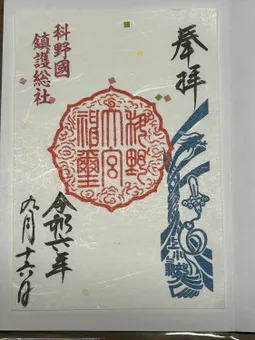 奉拝
科野國
鎮護総社
科野
大宮
令和六年
九月十六日